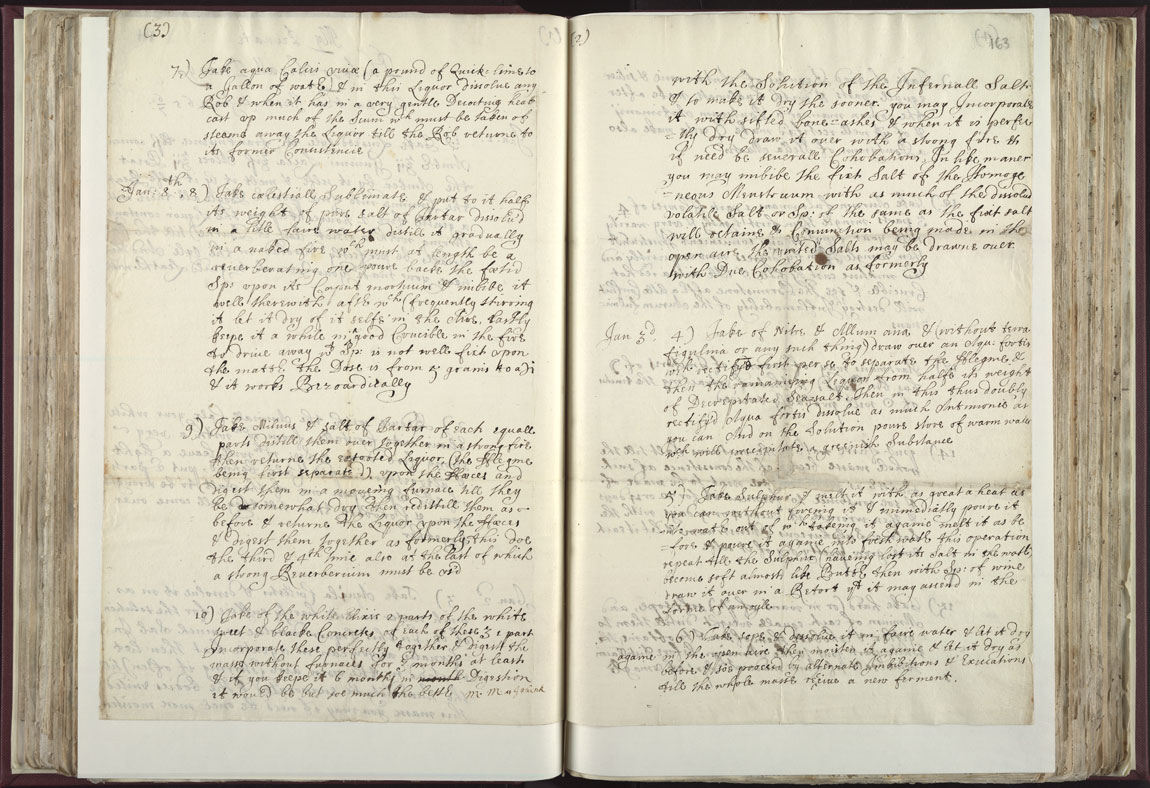 (3)
7) Take aqua Calcis vivæ (a pound of Quick-lime to
a Gallon of water & in this Liquor dissolve any
Rob & when it has in a very gentle Decocting heat
cast up much of the Scum wch must be taken of
steeme away the Liquor till the Rob returne to
its former Consistencie
Jan: 8th. 8) Take cælestiall Sublimate & put to it halfe
its weight of pure salt of Tartar dissolved
in a little faire water distill it gradually
in a naked fire wch must at length be a
reverberating one poure back the fætid
Spt upon its Caput mortuum & imbibe it
well therewith after wch (frequently stirring
it let it dry of it selfe in the Aire, Lastly
keepe it a while in a good Crucible in the fire
to drive away wt Spt is not well fixt upon
the matter the Dose is from 5 grains to
& it works Bezoardically
9) Take and Salt of Tartar of each equall
parts distill them over together in a strong fire
then returne the extorted Liquor, (the Flegme
being first separated), upon the Fæces and
Digest them in a moveing furnace till they
be somewhat dry then redistill them as
before & returne the Liquor upon the Fæces
& Digest them together as formerly, this doe
the third & 4th time also at the last of which
a strong Reverberium must be us'd
10) Take of the white 2 parts of the white
& blacke Concretes of each of these 1 part
Incorporate these perfectly together & digest the
mass without furnaces for 2 months at least
& if you keepe it 6 months in Digestion
it would be but soe much the better
(2)
163
with the Solution of the Infernall Salt
& to make it dry the sooner you may Incorporate
it with sifted bone-ashes & when it is perfec
=tly dry draw it over with a strong fire &
if need be severall Cohobations, In like maner
you may imbibe the fixt Salt of the Homoge
neous Menstruum with as much of the dissolud
volatile Salt or Sp: of the same as the fixt salt
will retaine & Conjunction being made in the
open aire the united Salts may be drawne over
with Due Cohobation as formerly
Jan 3d. 4) Take of Nitre & Allum ana, & (without terra
figulina or any such thing) draw over an Aqu: fortis
wch rectify first per se to separate the Flegme &
then the remaineing Liquor from halfe its weight
of Decrepitated Seasalt Then in this thus doubly
rectify'd Aqua fortis dissolve as much Antmonie as
you can And on the Solution poure store of warm water
wch will precipitate a greenish Substance
5) Take Sulphur & melt it with as great a heat as
you can without fireing it & immediatly poure it
into water out of wch takeing it againe melt it as be
=fore & poure it againe into fresh water this operation
repeat till the Sulphur haveing lost its Salt in the water
become soft almost like Butter then with Sp: of wine
draw it over in a Retort yt it may ascend in the
forme of an oyle
6) Take & dissolve it in faire water & let it dry
againe in the open aire then moisten it againe & let it dry as
before & soe proceed by alternate Imbibitions & Exiccations
till the whole masse receive a new ferment.